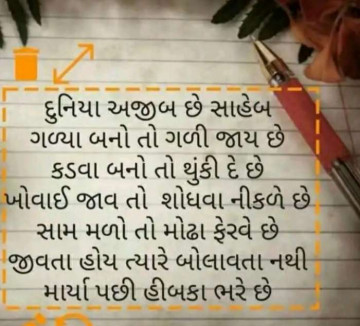 દુનિયા અજીબ છે સાહેબ
ગળ્યા બનો તો ગળી જાય છે
કડવા બનો તો થુંકી દે છે
ખોવાઈ જાવ તો શોધવા નીકળે છે
સામ મળો તો મોઢા ફેરવે છે
જીવતા હોય ત્યારે બોલાવતા નથી
માર્યા પછી હીબકા ભરે છે